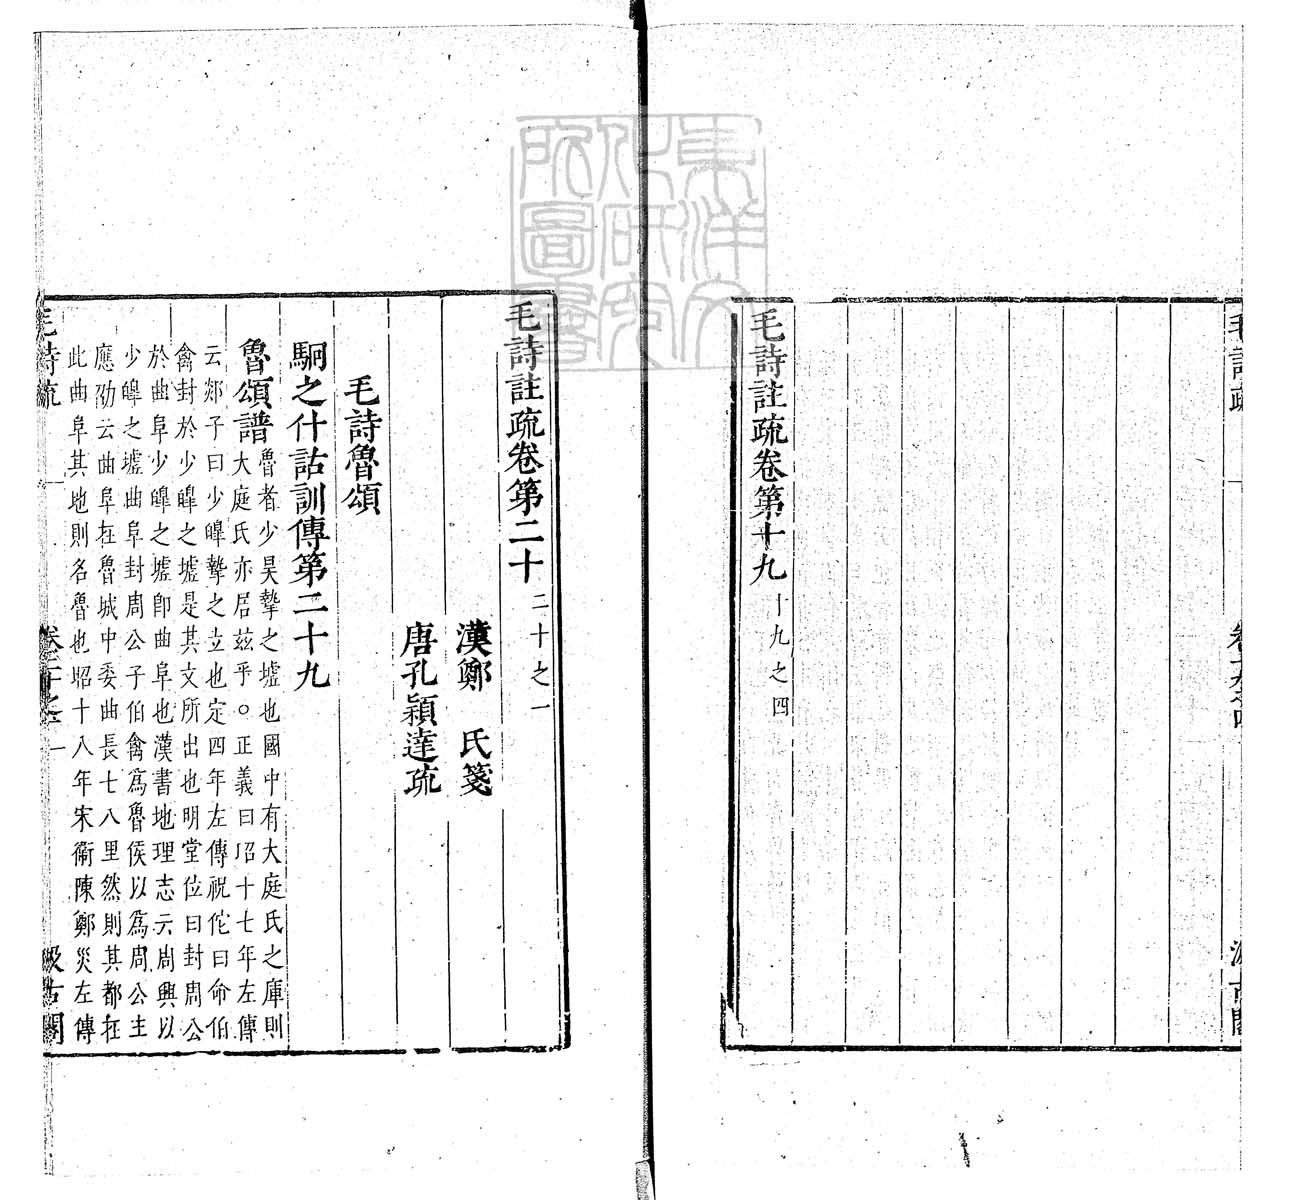 毛詩疏
卷十九之四
汲古閣
毛詩註疏卷第十九 十九之四
毛詩註疏卷第二十 二十之一
漢鄭 氏箋
唐孔穎達疏
毛詩魯頌
駉之什詁訓傳第二十九
魯頌譜
魯者少昊摯之墟也國中有大庭氏之庫則
大庭氏亦居茲乎○正義曰昭十七年左傳
云郯子曰少皥摯之立也定四年左傳祝佗曰命伯
禽封於少皥之墟是其文所出也明堂位曰封周公
於曲阜少皥之墟卽曲阜也漢書地理志云周興以
少皥之墟曲阜封周公子伯禽爲魯侯以爲周公主
應劭云曲阜在魯城中委曲長七八里然則其都在
此曲阜其地則名魯也昭十八年宋衞陳鄭災左傳
毛詩疏
卷二十之一
一
汲古閣
東洋文
化研究
所圖書